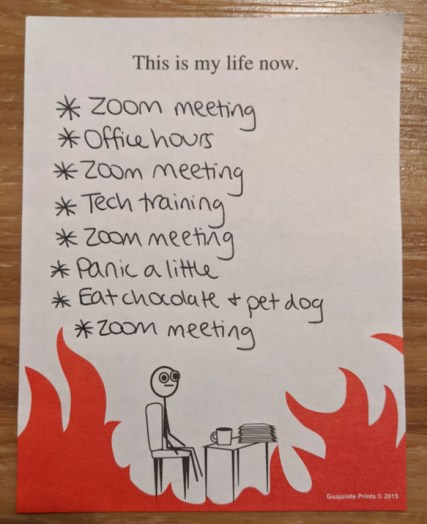 This is my life now.
* Zoom meeting
* Office hours
* Zoom meeting
* Tech training
* Zoom meeting
* Panic a little
* Eat chocolate + pet dog
* Zoom meeting
Guajolote Prints © 2015